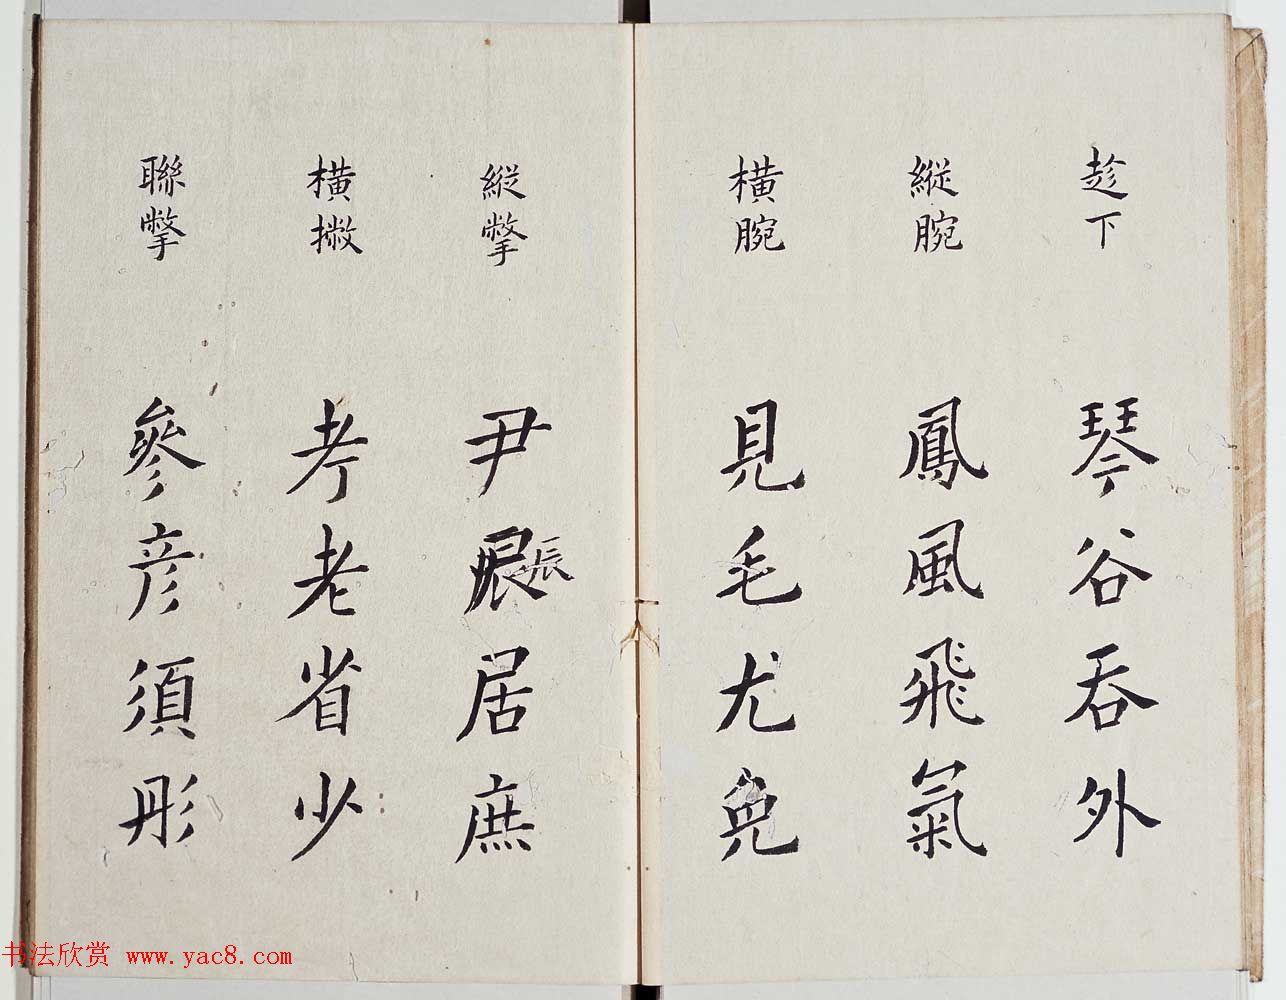 趁下
琴谷吞外
縱腕
鳳風飛氣
橫腕
見毛尤免
縱撆
尹居庶
辰
�撇
考老省少
聯撆
參彦須彤
书法欣赏 www.yac8.com